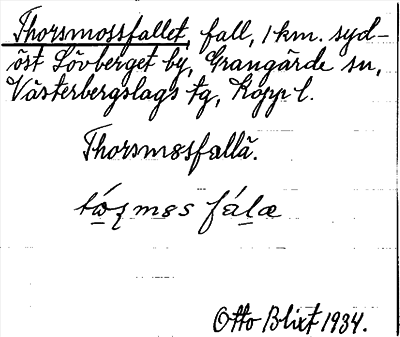 Thorsmossfallet, fall, 1 km. syd-
öst Lövberget by, Grangärde sn,
Västerbergslags tg, Kopp l.
Thorsmøsfallä.
Otto Blixt 1934.